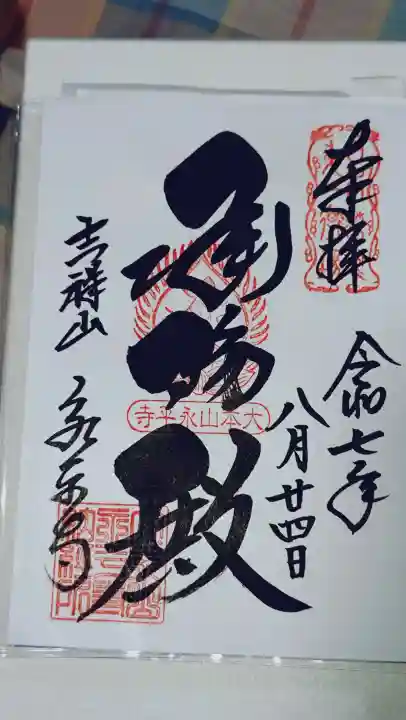 奉拝
令和七年
八月廿四日
承陽殿
大本山永平寺
吉祥山
永平寺